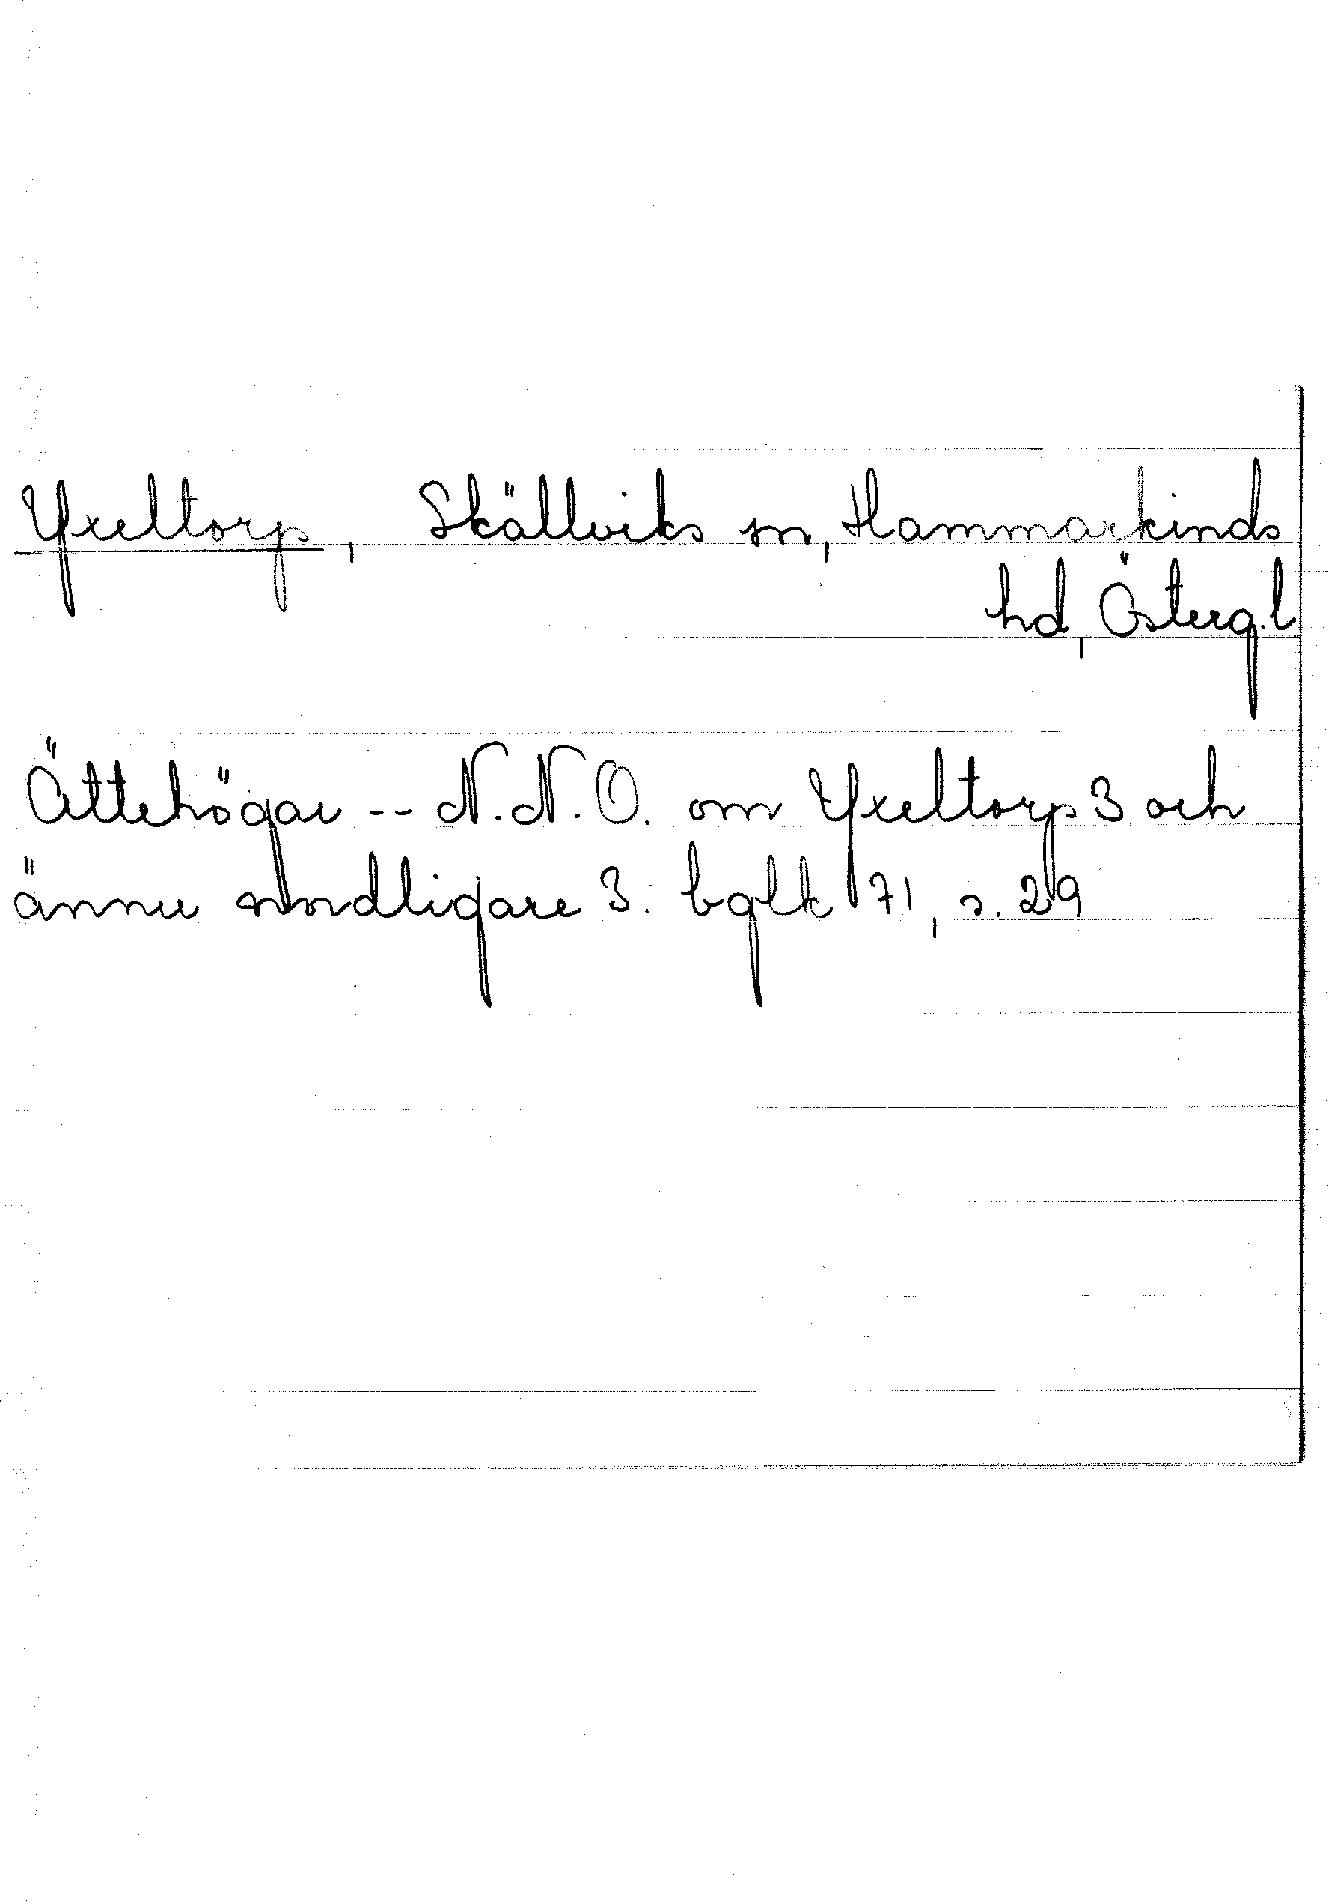 Yxeltorp, Skällviks sn, Hammarkinds
hd, Österg.l
Ättehögar -- N.N.O. om Yxeltorp 3 och
ännu nordligare 3: bglk 71, s. 29